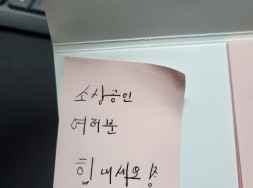 소상공인
여러분
힘내세요!